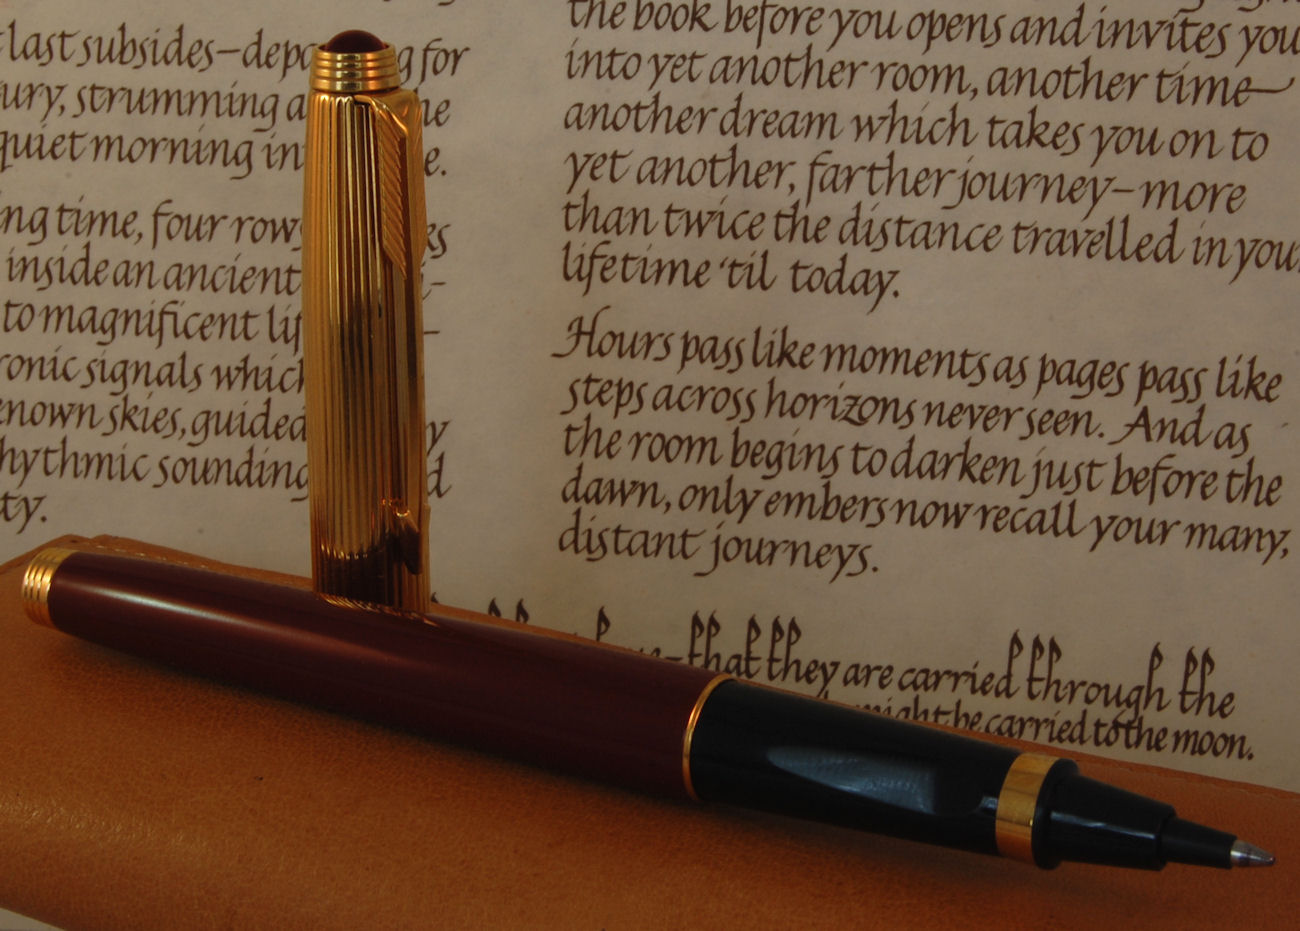 last subsides—
for
strumming
quiet morning
time, four rows
inside an ancient
to magnificent
signals
skies, guided
the book before you opens and invites you
into yet another room, another time—
another dream which takes you on to
yet another, farther journey—more
than twice the distance travelled in
lifetime 'til today.
Hours pass like moments as pages pass like
steps across horizons never seen. And as
the room begins to darken just before the
dawn, only embers now recall your many,
distant journeys.
—that they are carried through the
might be carried to the moon.